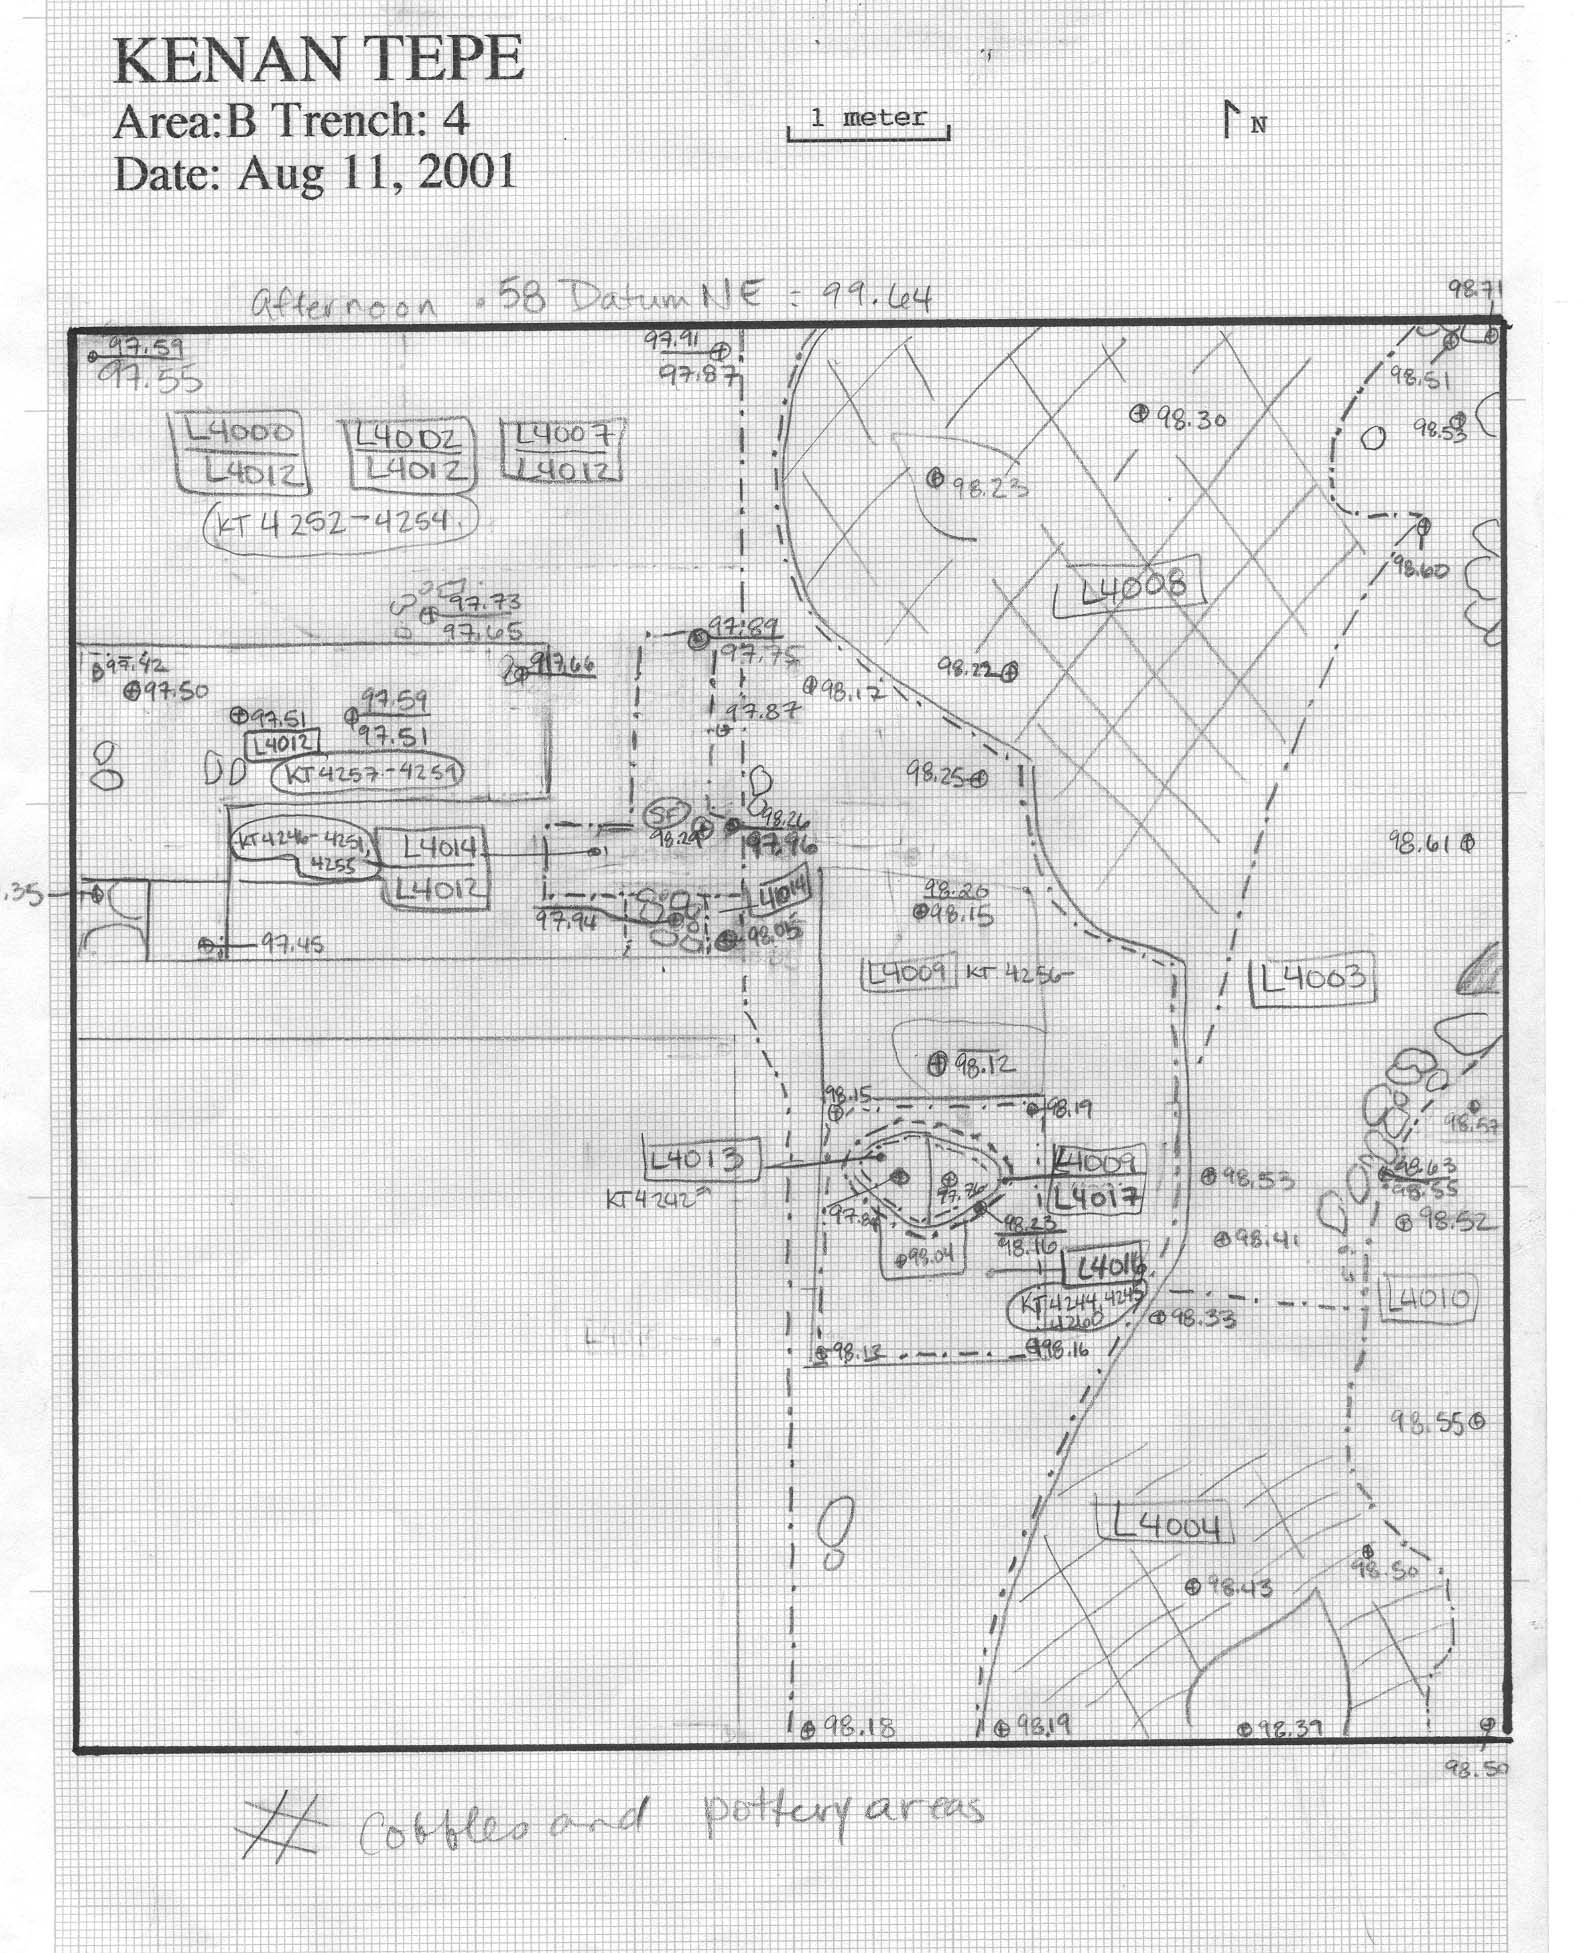 KENAN TEPE
Area:B Trench: 4
Date: Aug 11, 2001
1 meter
N
Afternoon .58 Datum NE = 99.64
98.71
97.59
97.55
97.91
97.87
98.51
98.30
98.53
L4000
L4012
L4002
L4012
L4007
L4012
98.23
KT 4252-4254
98.60
L4008
97.73
97.65
97.89
97.75
97.42
97.50
97.66
98.22
98.12
97.59
97.51
97.51
97.87
L4012
KT4257-4259
98.25
SF
98.26
97.96
98.61
KT4246-4251,
4255
L4014
L4012
.35
L4014
98.20
98.15
97.94
98.05
97.45
L4009 KT 4256-
L4003
98.12
98.15
98.19
98.57
L4013
L4009
L4017
98.53
98.63
98.55
KT4242
97.76
98.23
98.16
98.52
98.04
98.41
L4016
KT4244, 4245
4260
98.33
L4010
98.13
98.16
98.55
L4004
98.50
98.43
98.18
98.19
98.39
98.50
# Cobbles and pottery areas